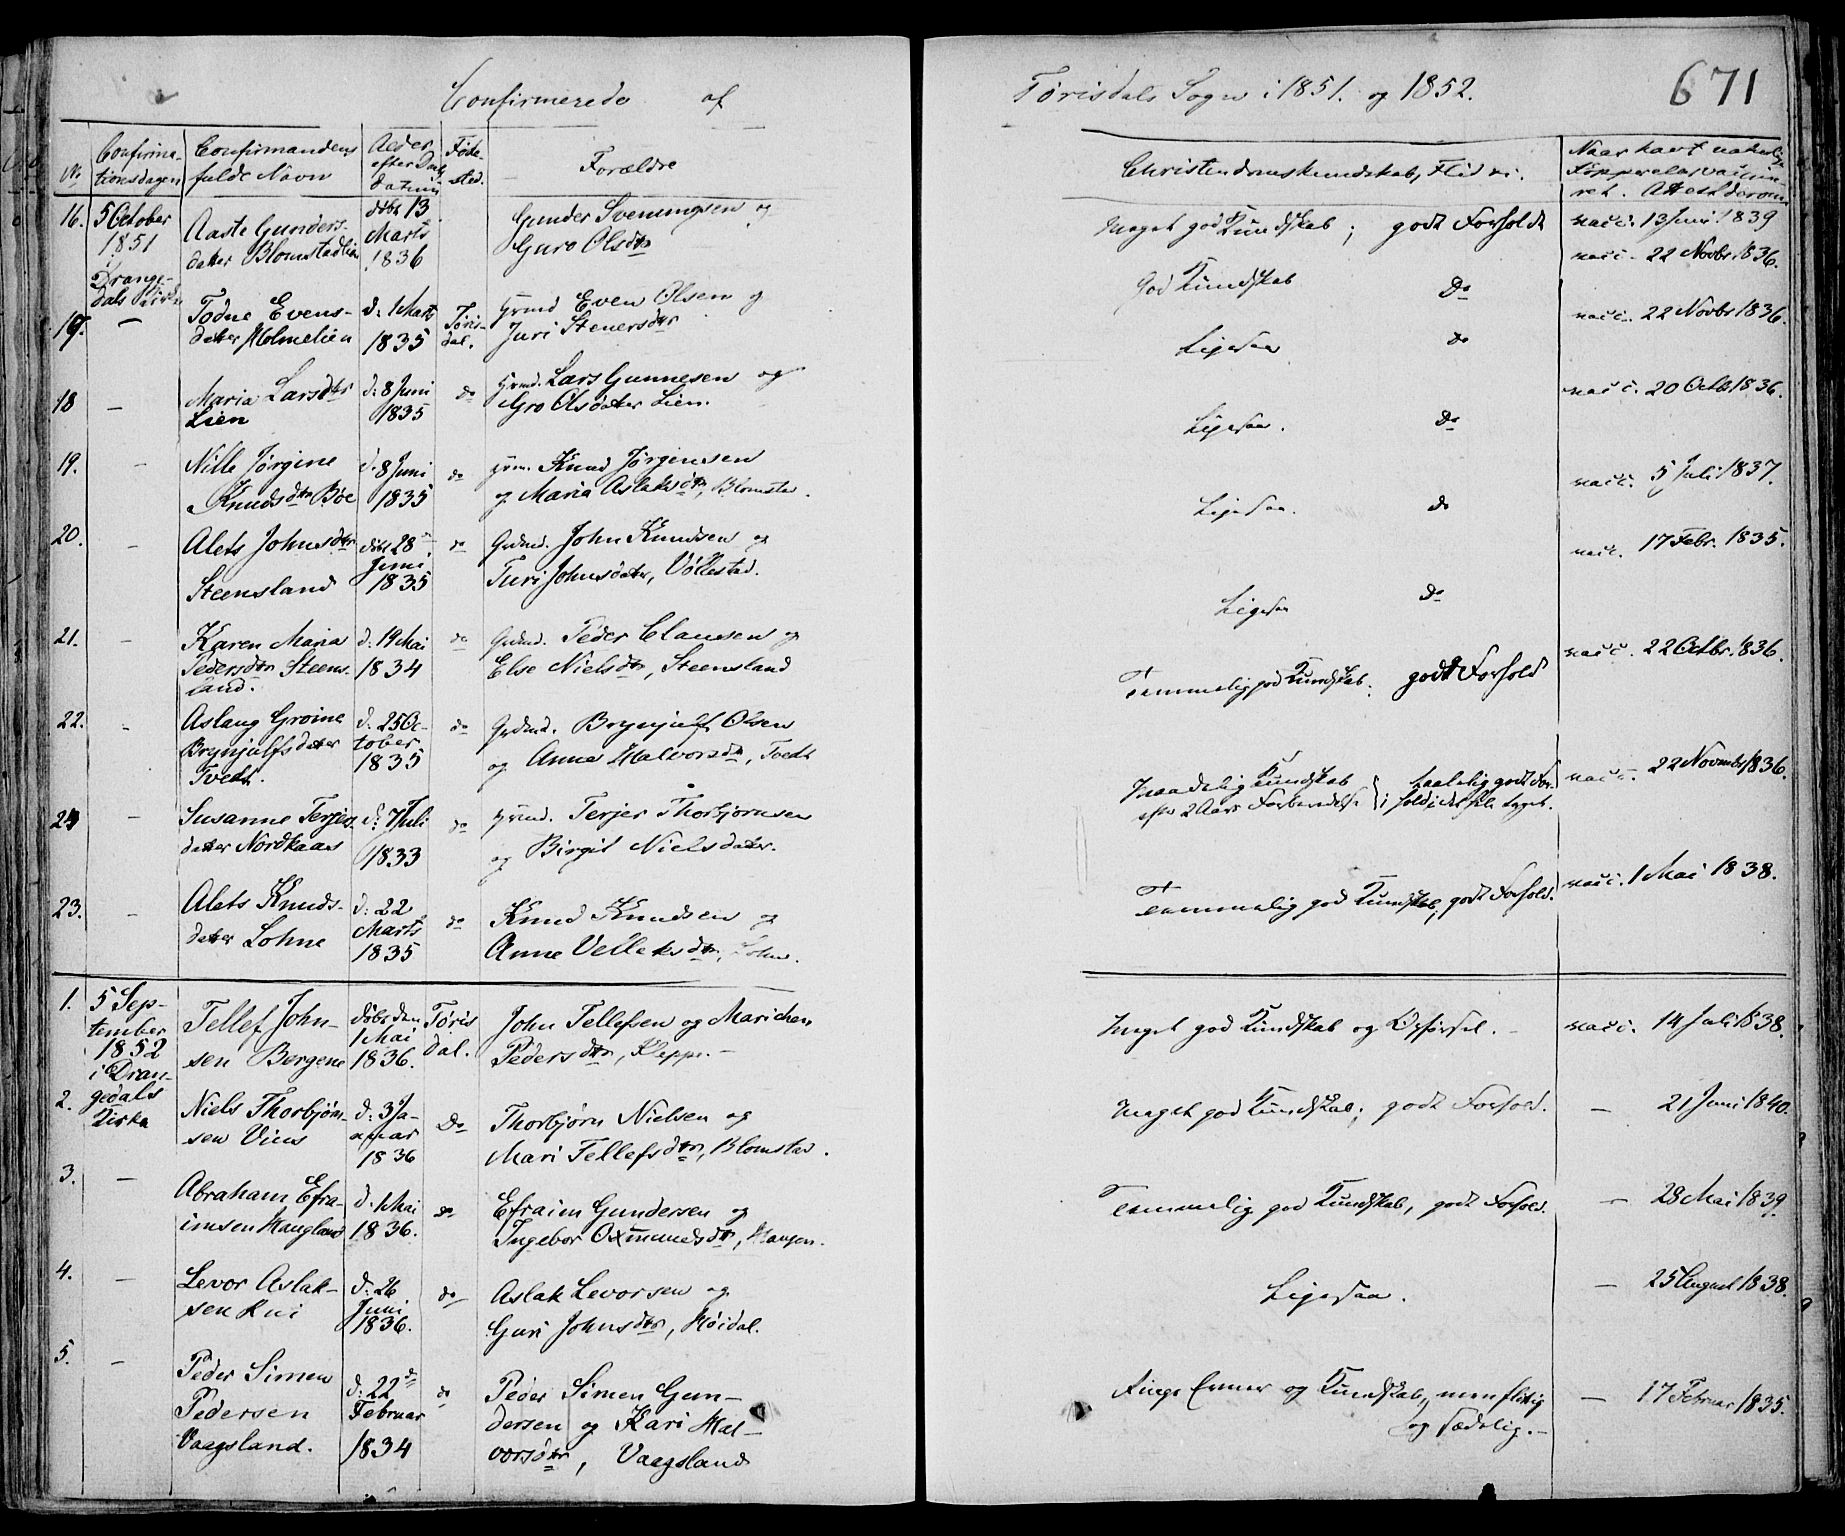 Confirmerede af
Tørisdals Sogn i 1851. og 1852.
671
No
Confirma-
tionsdagen
Confirmandens
fulde Navn
Alder
efter Daab
datum
Føde-
sted.
Forældre
Christendomskundskab, Flid
Naar havt naturlige
Kopper el. er vaccine-
ret. Attest derom
16. 5 October
1851
i Drange-
dals Kirke
Aaste Gunders-
datter Blomstadlien
døbt 13
Marts
1836
Gunder Sveningsen og
Guro Olsdtr
Meget god Kundskab; godt Forhold
vacc. 13 Juni 1839
vacc. 22 Novbr 1836.
17. —
Todne Evens-
datter Holmelien
d: 1 Marts
1835
Tøris-
dal.
Grmd Even Olsen og
Juri Stenersdtr
God Kundskab Do
vacc. 22 Novbr 1836.
18 —
Maria Larsdtr
Lien
d: 8 Juni
1835
do
Grmd. Lars Gunnesen og
Gro Olsdatter Lien.
Ligesaa do
vacc. 20 Octb 1836.
19. —
Nille Jørgine
Knudsdtr Bøe
d. 8 Juni
1835
do
Grm. Knud Jørgensen
og Maria Aslaksdtr, Blomstad.
Ligesaa. Do
vacc. 5 Juli 1837.
20. —
Alets Johnsdtr
Steensland
døbt 28
Juni
1835
do
Grdmd. John Knudsen og
Turi Johnsdatter, Volkestad.
Ligesaa. do
vacc. 17 Febr. 1835.
21. —
Karen Maria
Pedersdtr Steens-
land.
d: 19 Mai
1834
do
Grdmd. Peder Clausen og
Else Nielsdtr, Steensland
Ligesaa do
vacc. 22 Octbr. 1836.
22. —
Aslaug Groine
Brynjulfsdatter
Tvedt.
d: 25 Oc-
tober
1835
do
Grdmd. Brynjulf Olsen
og Anne Halvorsdtr, Tvedt
Temmelig god Kundskab; godt Forhold
vacc. 22 Novembr 1836.
24 —
Susanne Terjes-
datter Nordkaas
d: 7 Juli
1833
do
Grmd. Terjer Thorbjørnsen
og Birgit Nielsdatter.
Maadelig Kundskab
efter 2 Aars Forberedelse
taalelig godt For-
hold
23. —
Alets Knuds-
datter Lohne
d: 22
Marts
1835
do
Knud Knudsen og
Anne Velleksdtr, Lohne.
Temmelig god Kundskab, godt Forhold.
vacc. 1 Mai 1838.
1. 5 Sep-
tember
1852
i Dran-
gedals
Kirke
Tellef John-
sen Bergene
døbt den
1 Mai
1836.
Tøris
dal.
John Tellefsen og Marichen
Pedersdtr, Kleppe. —
Meget god Kundskab og Opførsel. —
vacc. 14 Juli 1838.
2.
Niels Thorbjørn-
sen Viens
d: 3 Ja-
nuar
1836
Do
Thorbjørn Nielsen og
Mari Tellefsdtr, Blomstad.
Meget god Kundskab; godt Forhold.
— 21 Juni 1840.
3. —
Abraham Efra-
imsen Haugland
d: 1 Mai
1836.
do
Efraim Gundersen og
Ingebor Oxmundsdtr, Haugen.
Temmelig god Kundskab, godt Forhold.
— 28 Mai 1839.
4. —
Levor Aslak-
sen Kui
d: 26
Juni
1836.
do
Aslak Levorsen og
Guri Johnsdtr, Høidal.
Ligesaa.
— 25 August 1838.
5. —
Peder Simen
Pedersen
Vaagsland.
d: 22de
Februar
1834
do
Peder Simen Gun-
dersen og Kari Hal-
vorsdtr, Vaagsland
Ringe Evner og Kundskab, men flittig
og sædelig. —
— 17 Februar 1835.